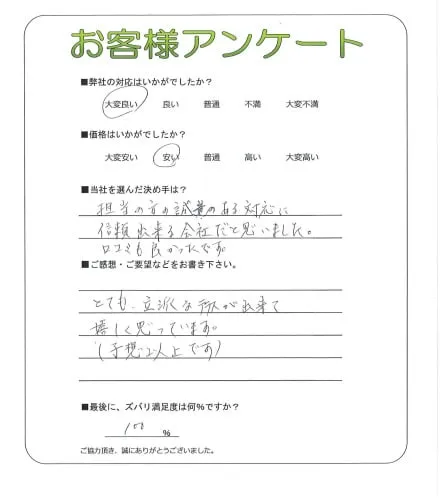 お客様アンケート
■弊社の対応はいかがでしたか？
大変良い 良い 普通 不満 大変不満
■価格はいかがでしたか？
大変安い 安い 普通 高い 大変高い
■当社を選んだ決め手は？
担当の方の誠意のある対応に
信頼出来る会社だと思いました。
口コミも良かったです。
■ご感想・ご要望などをお書き下さい。
とても、立派な が出来て
嬉しく思っています。
(予想以上です)
■最後に、ズバリ満足度は何％ですか？
100 %
ご協力頂き、誠にありがとうございました。